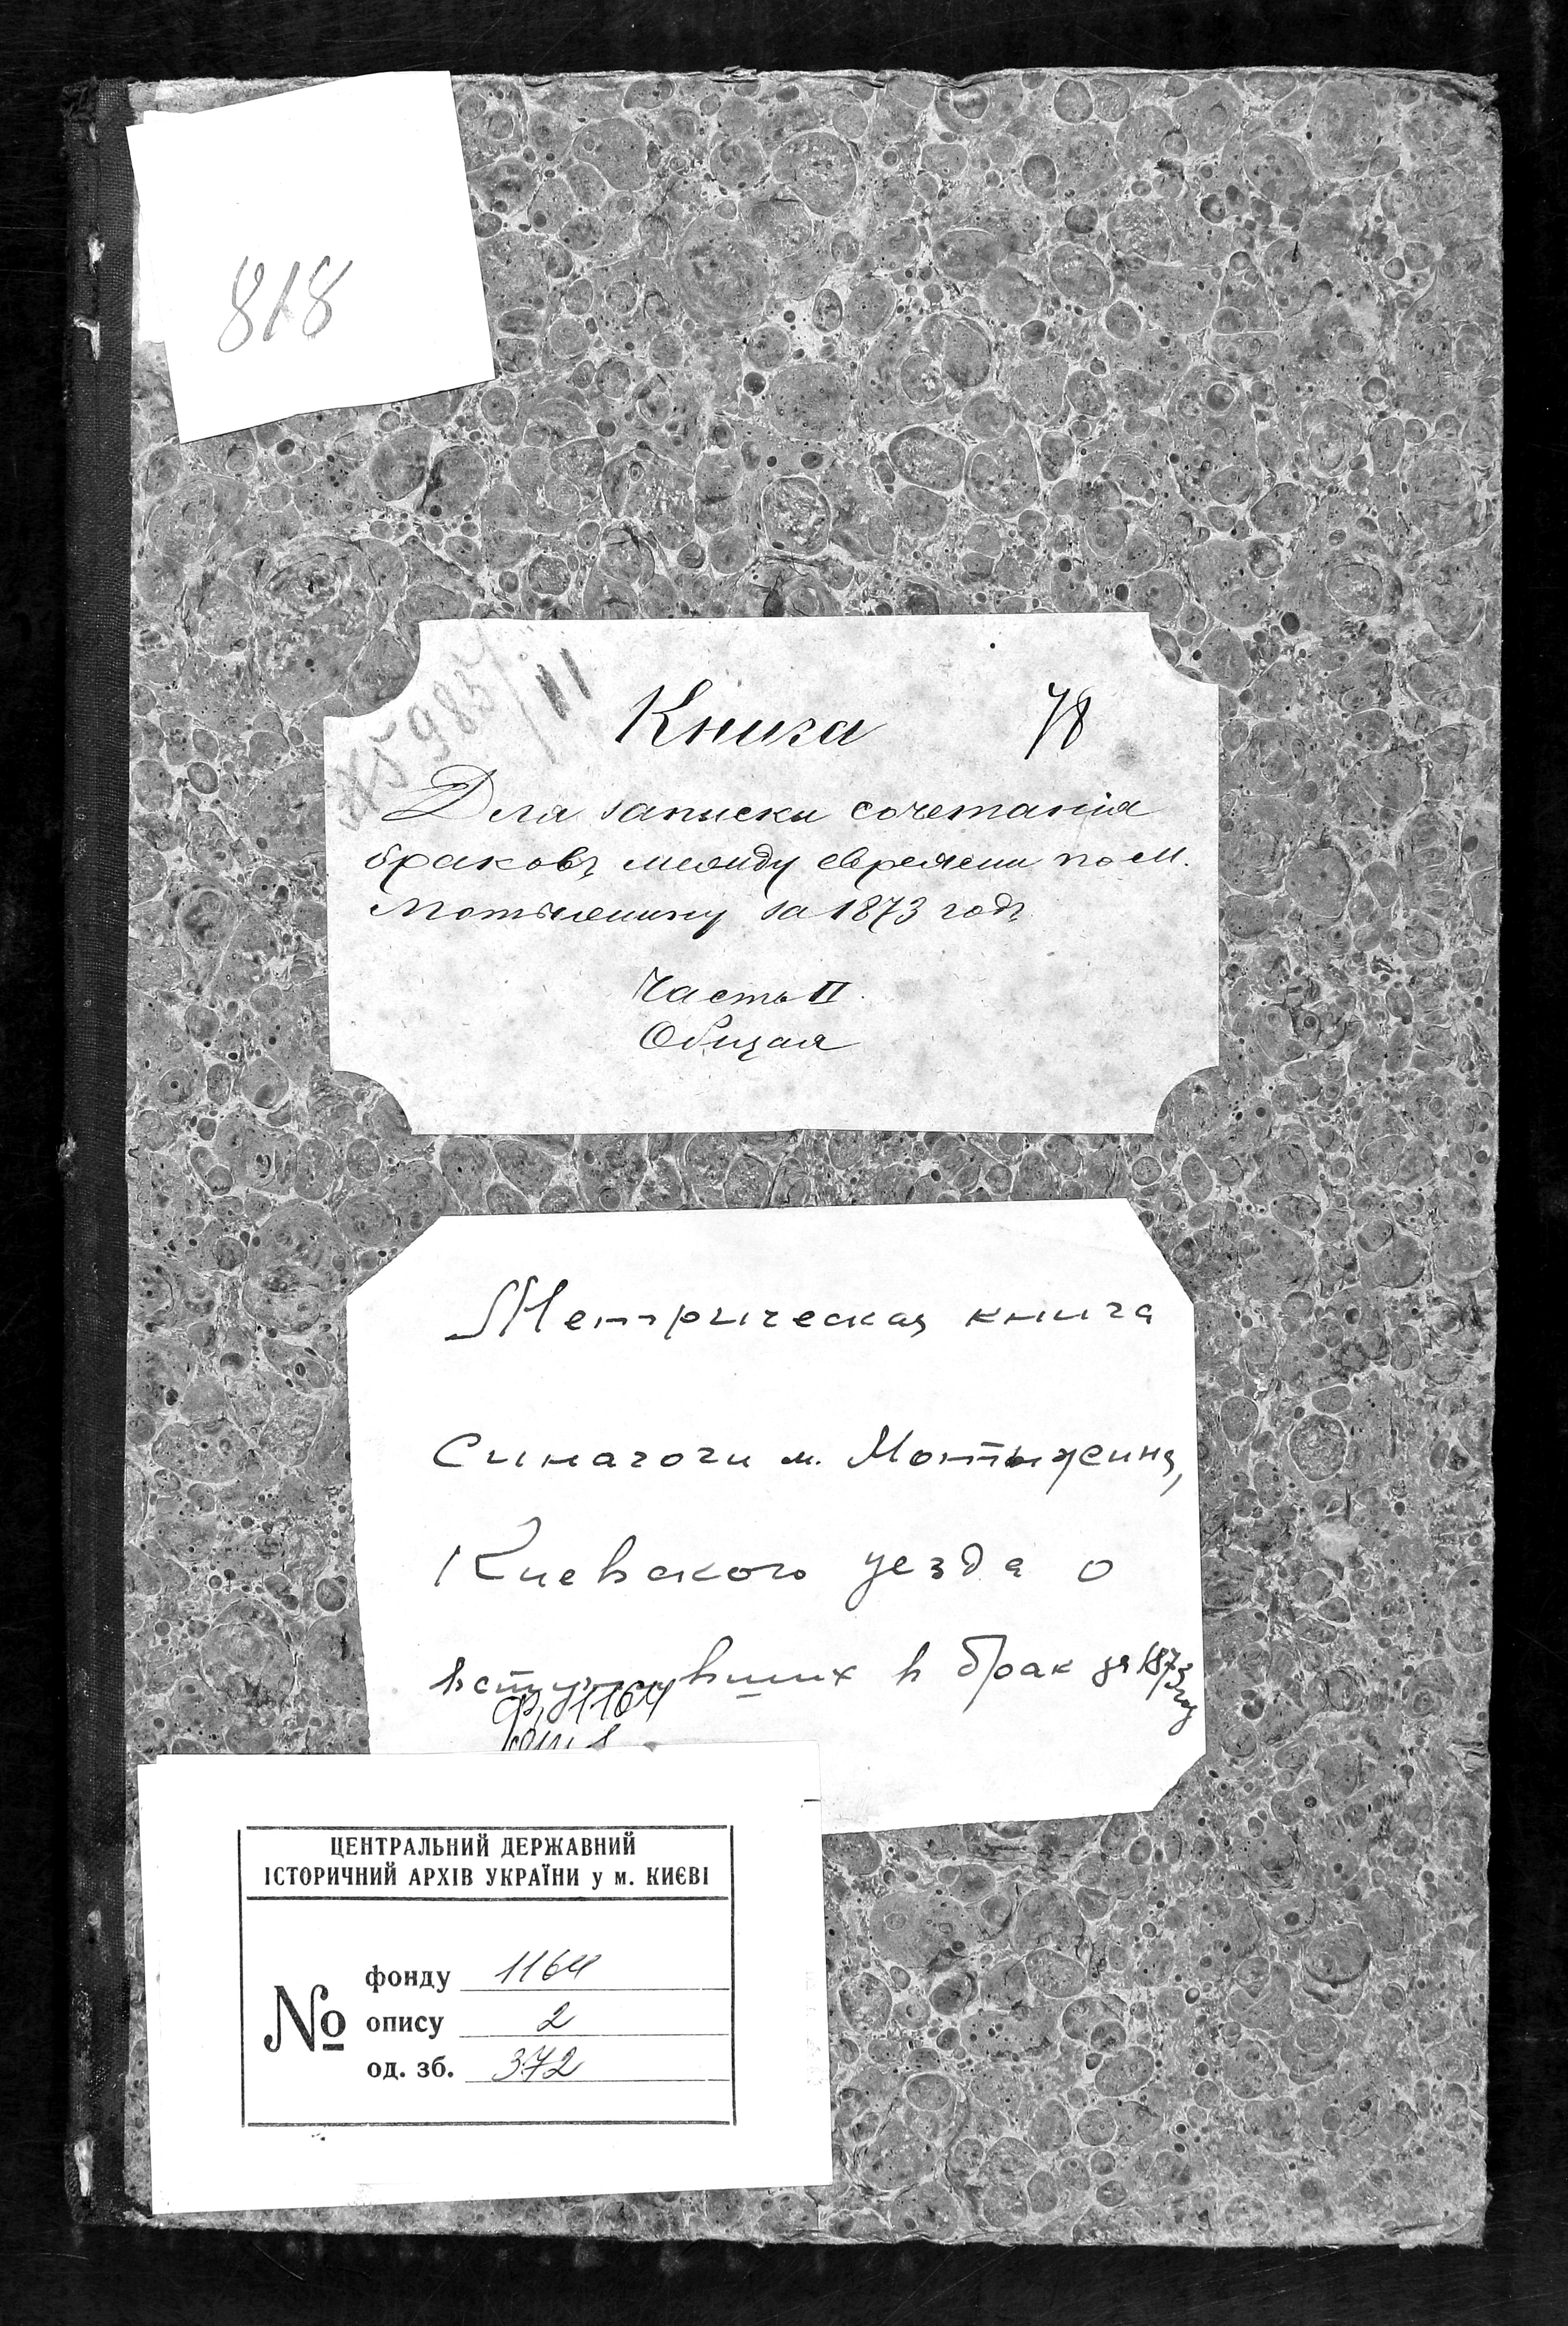 818
Книга 78
Для записки сочетанія
браковъ между евреями по м.
Мотыжину за 1873 годъ
Часть II
Общая
Метрическая книга
Синагоги м. Мотыжина,
Киевского уезда о
вступивших в брак за 1873 год
ф. 1164
оп.
ЦЕНТРАЛЬНИЙ ДЕРЖАВНИЙ
ІСТОРИЧНИЙ АРХІВ УКРАЇНИ у м. КИЄВІ
№
фонду 1164
опису 2
од. зб. 372